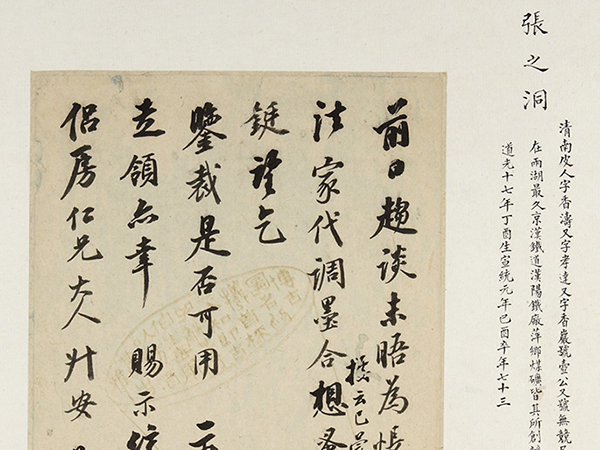 張之洞
清南皮人字香濤又字孝達又字香巖號壺公又號無競
在兩湖最久京漢鐵道漢陽鐵廠萍鄉煤礦皆其所創
道光十七年丁酉生宣統元年己酉卒年七十三
前日趨談未晤為悵
法家代調墨合想蚤
據云已
鋌望乞
鑒裁是否可用
走領亦幸 賜示
侶房仁兄大人升安